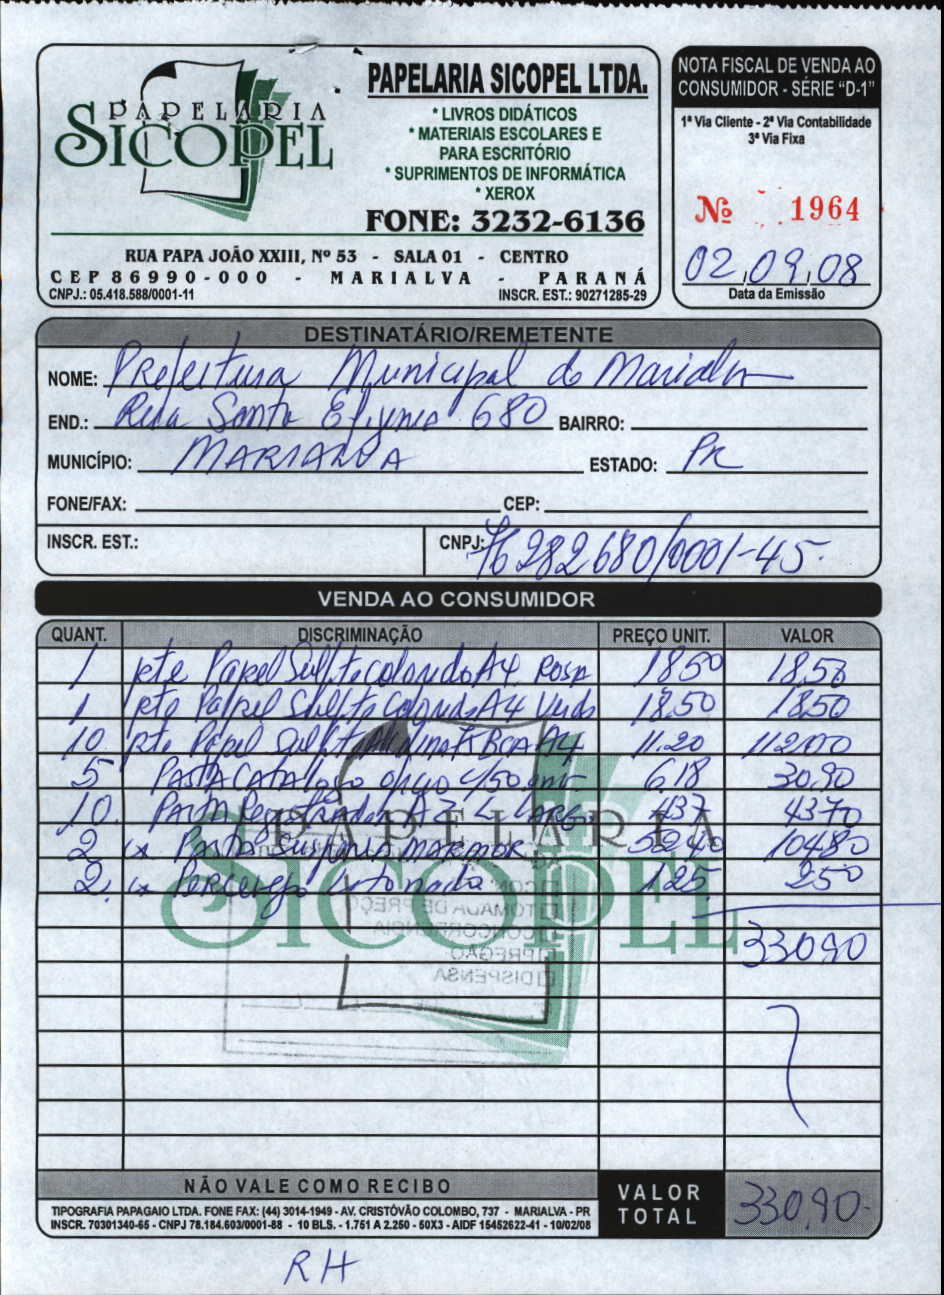 PAPELARIA
SICOPEL
PAPELARIA SICOPEL LTDA.
* LIVROS DIDÁTICOS
* MATERIAIS ESCOLARES E
PARA ESCRITÓRIO
* SUPRIMENTOS DE INFORMÁTICA
* XEROX
FONE: 3232-6136
RUA PAPA JOÃO XXIII, Nº 53 - SALA 01 - CENTRO
CEP 86990-000 - MARIALVA - PARANÁ
CNPJ.: 05.418.588/0001-11 INSCR. EST.: 90271285-29
NOTA FISCAL DE VENDA AO
CONSUMIDOR - SÉRIE "D-1"
1ª Via Cliente - 2ª Via Contabilidade
3ª Via Fixa
Nº 1964
02,09,08
Data da Emissão
DESTINATÁRIO/REMETENTE
NOME: Prefeitura Municipal de Marialva
END.: Rua Santa Efigenia 680 BAIRRO:
MUNICÍPIO: MARIALVA ESTADO: PR
FONE/FAX: CEP:
INSCR. EST.: CNPJ: 76282680/0001-45
VENDA AO CONSUMIDOR
QUANT. DISCRIMINAÇÃO PREÇO UNIT. VALOR
1 pte Papel Sulfite colorido A4 Rosa 18,50 18,50
1 pte Papel Sulfite Colorido A4 Verde 18,50 18,50
10 pte Papel Sulfite A4 11.20 112,00
5 PASTA CATALOGO c/50 6,18 30,90
10. Pasta Registrador AZ L LARGO 4,37 43,70
2 cx Pasta Suspensa MARMOR 52,40 104,80
2, cx Percevejo Latonado 1,25 2,50
PAPELARIA
SICOPEL
TOMADA DE PREÇO
CONCORRÊNCIA
PREGÃO
DISPENSA
330,90
NÃO VALE COMO RECIBO
VALOR TOTAL 330,90
TIPOGRAFIA PAPAGAIO LTDA. FONE FAX: (44) 3014-1949 - AV. CRISTÓVÃO COLOMBO, 737 - MARIALVA - PR
INSCR. 70301340-65 - CNPJ 78.184.603/0001-88 - 10 BLS. - 1.751 A 2.250 - 50X3 - AIDF 15452622-41 - 10/02/08
RH